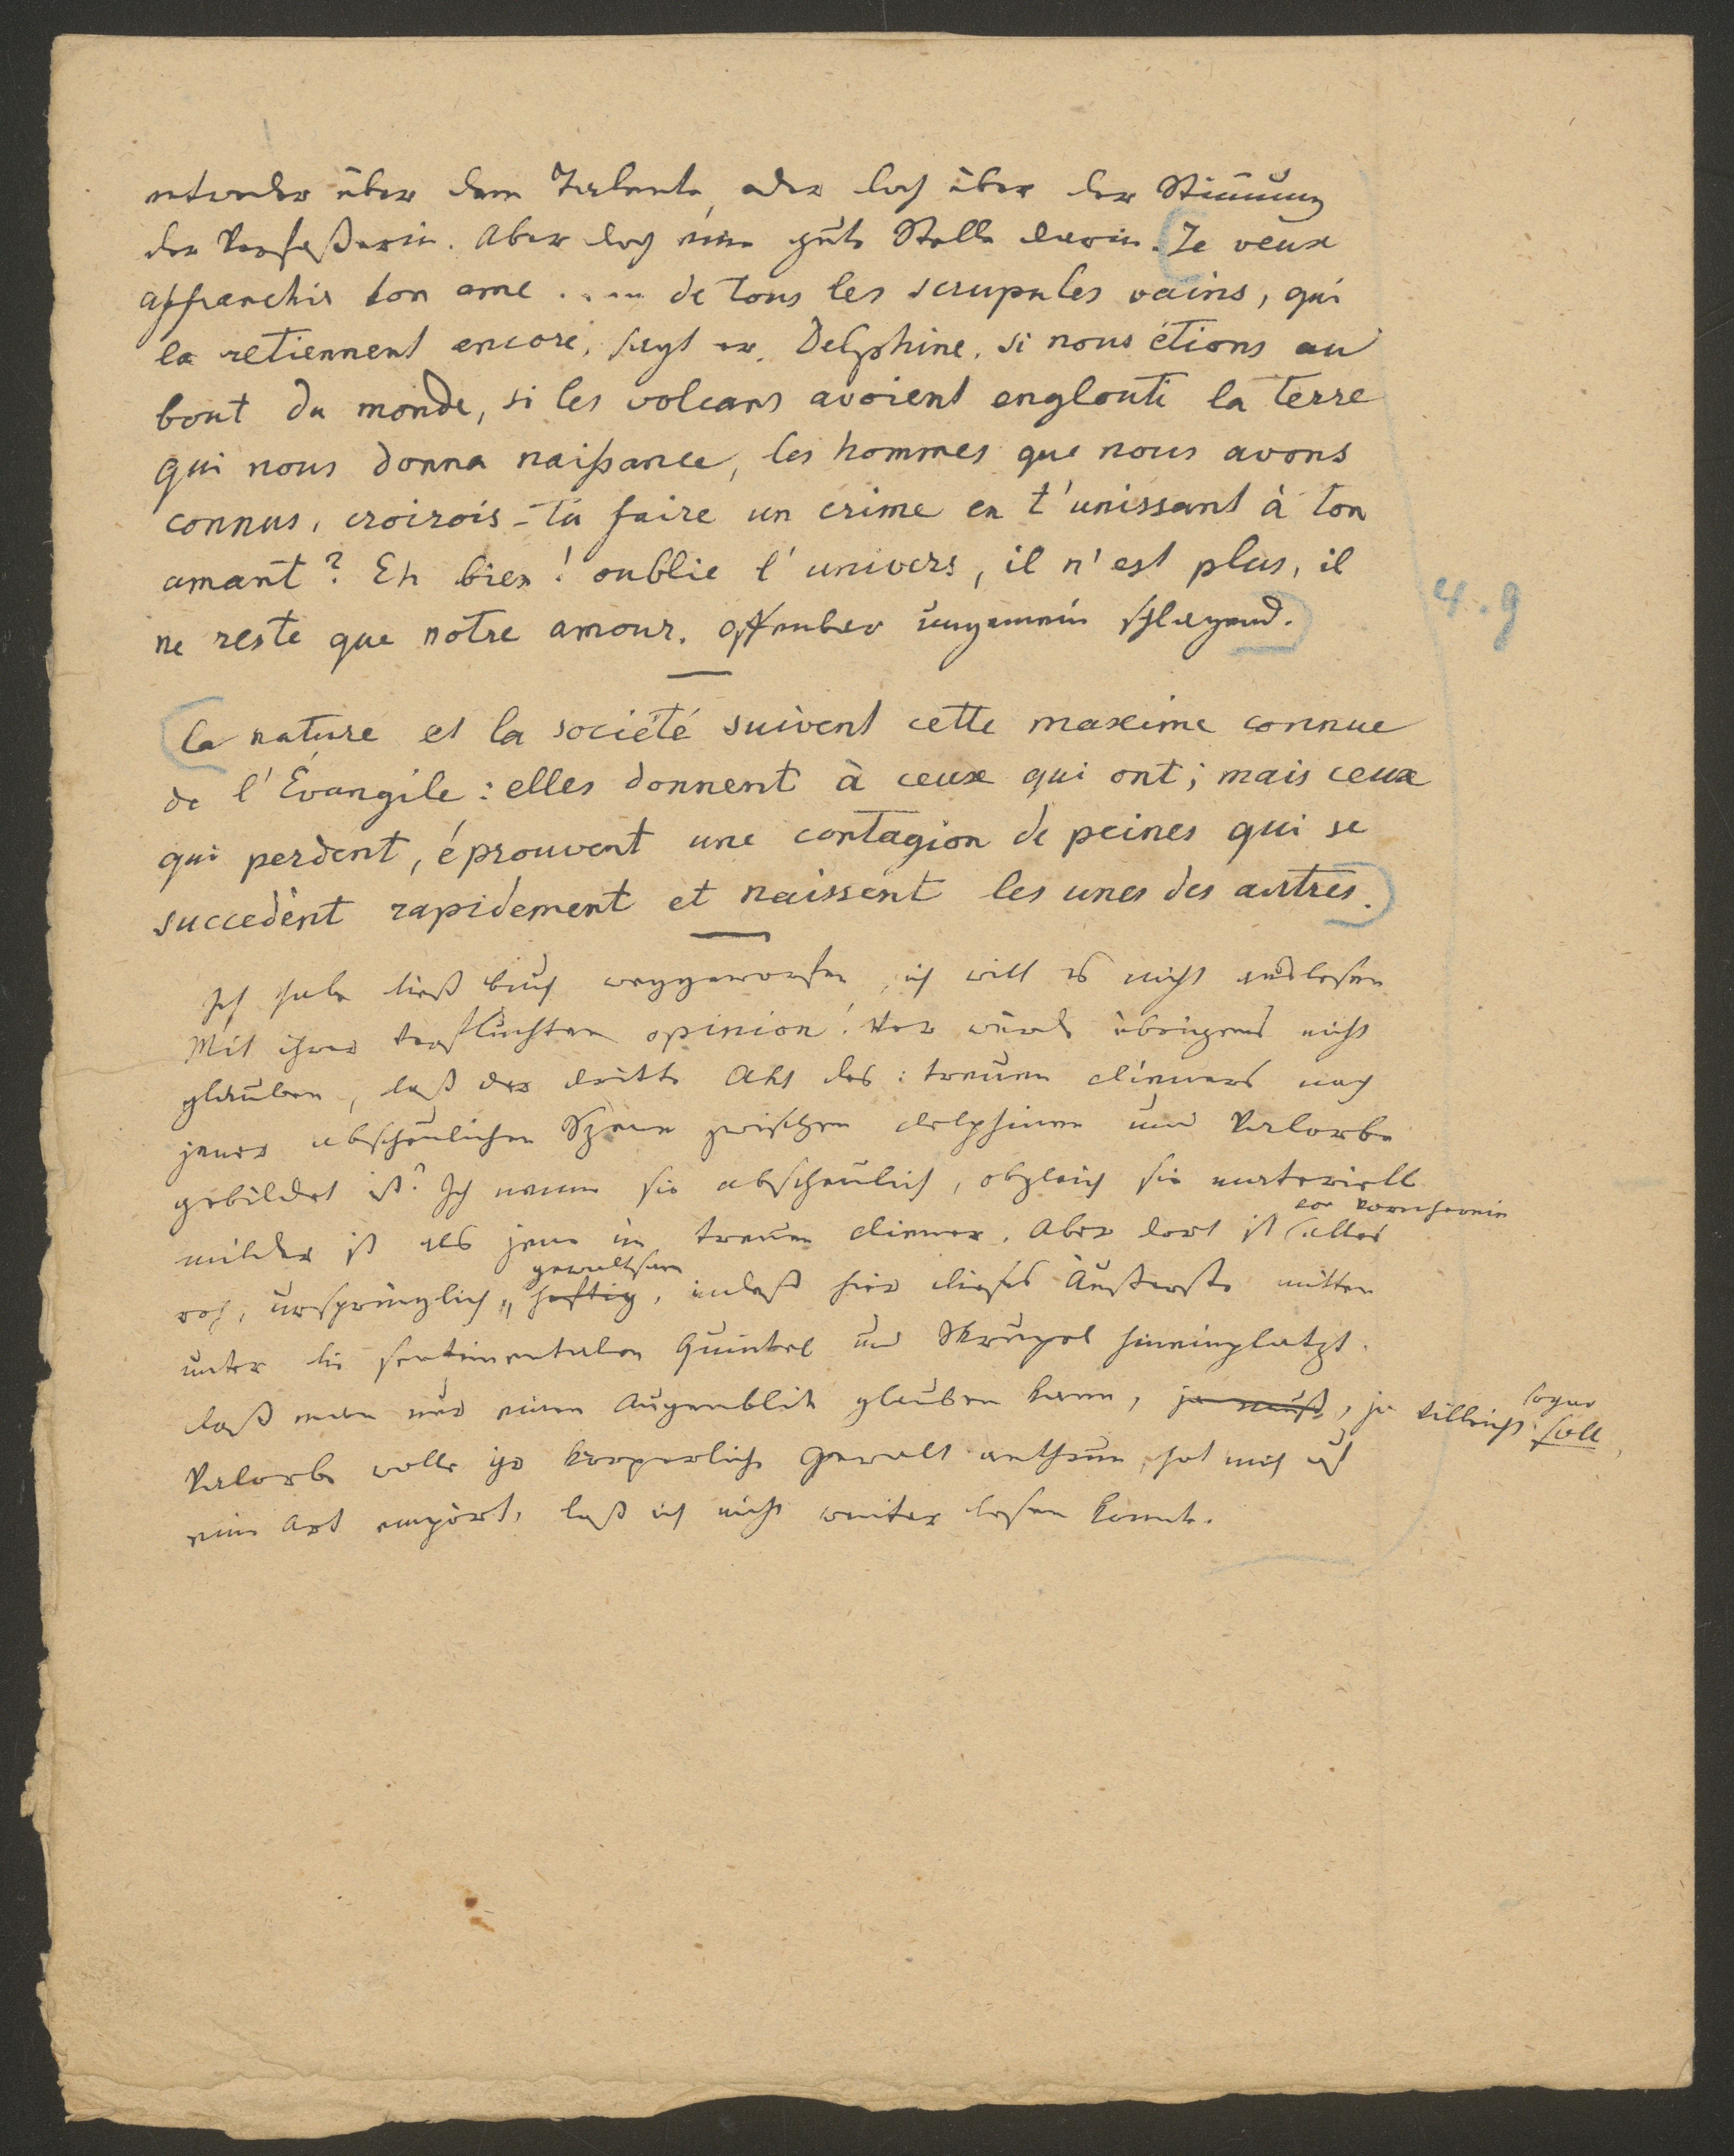 entweder über dem Talente, oder doch über der Stimmung
der Verfaßerin. Aber doch eine gute Stelle darin. Je veux
affranchir ton ame ..... de tous les scrupules vains, qui
la retiennent encore, sagt er. Delphine, si nous étions au
bout du monde, si les volcans avoient englouti la terre
qui nous donna naißance, les hommes que nous avons
connus, croirois-tu faire un crime en t'unissant à ton
amant? Eh bien! oublie l'univers, il n'est plus, il
ne reste que notre amour. Offenbar ungemein schlagend.
4.9
La nature et la société suivent cette maxime connue
de l'Évangile: elles donnent à ceux qui ont; mais ceux
qui perdent, éprouvent une contagion de peines qui se
succedènt rapidement et naissent les unes des autres.
Ich habe dieß Buch weggeworfen, ich will es nicht auslesen
Mit ihrer verfluchten opinion! Wer würde übrigens nicht
glauben, daß der dritte Akt des: treuen Dieners nach
jener abscheulichen Szene zwischen Delphinen und Valorbe
gebildet ist? Ich nenne sie abscheulich, obgleich sie materiell
milder ist als jene im treuen Diener. Aber dort ist vor vornherein alles
roh, ursprünglich, gewaltsam heftig, indeß hier dieses Äußerste mitten
unter die sentimentalen Quinkel und Skrupel hineinplatzt.
daß man nur einen Augenblick glauben kann, ja muß, ja vielleicht sogar soll,
Valorbe wolle ihr körperliche Gewalt anthun, hat mich auf
eine Art empört, daß ich nicht weiter lesen konnte.